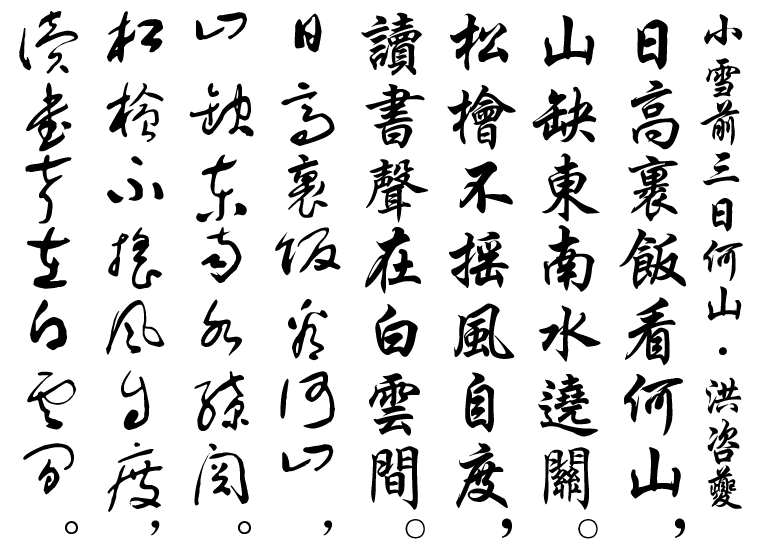 小雪前三日何山・洪咨夔
日高裏飯看何山，
山缺東南水遶關。
松檜不摇風自度，
讀書聲在白雲間。
日高裏飯看何山，
山缺東南水繞關。
松檜不摇風自度，
讀書聲在白雲間。